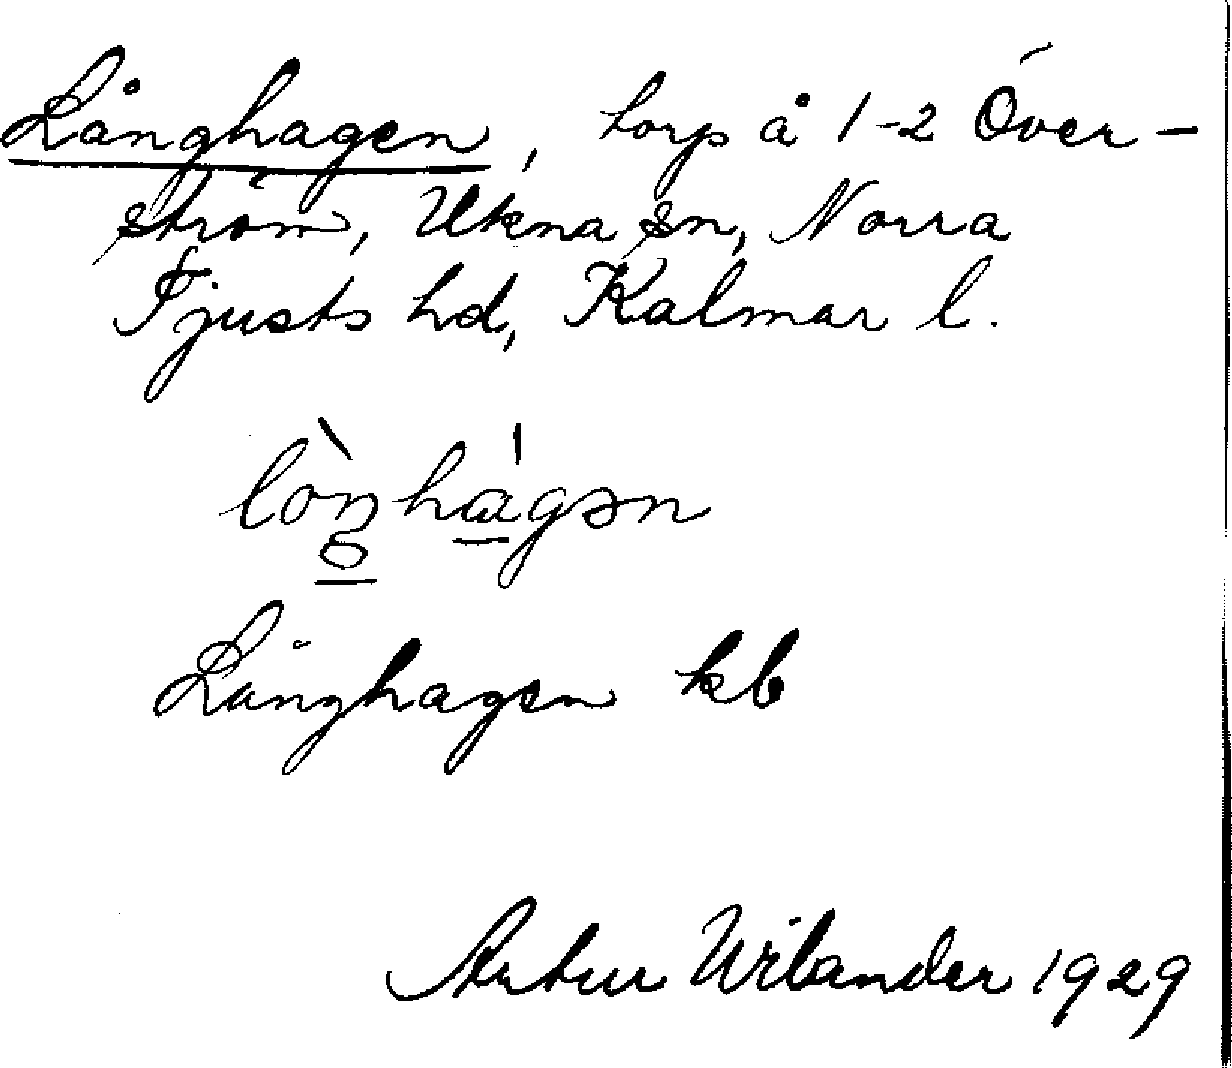 Långhagen, torp å 1-2 Över-
ström, Ukna sn, Norra
Tjusts hd, Kalmar l.
lòŋhágən
Långhagen kb
Artur Wilander 1929